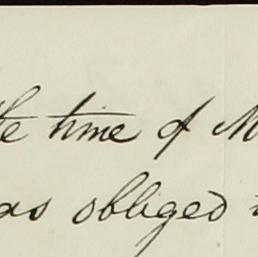 the time of M
as obliged